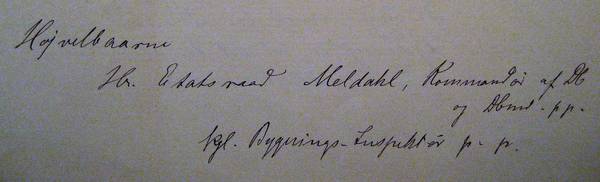 Højvelbaarne
Hr. Etatsraad Meldahl, Kommandør af Db
og Dbmd. p.p.
kgl. Bygnings-Inspektør p. p.